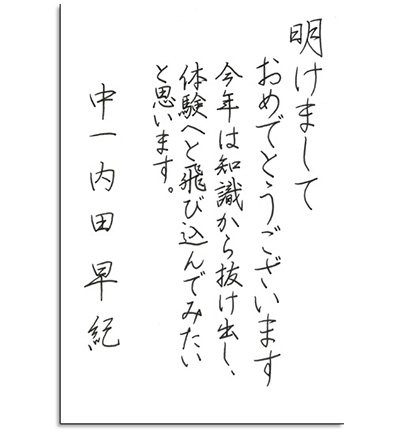 明けまして
おめでとうございます
今年は知識から抜け出し、
体験へと飛び込んでみたい
と思います。
中一 内田早紀